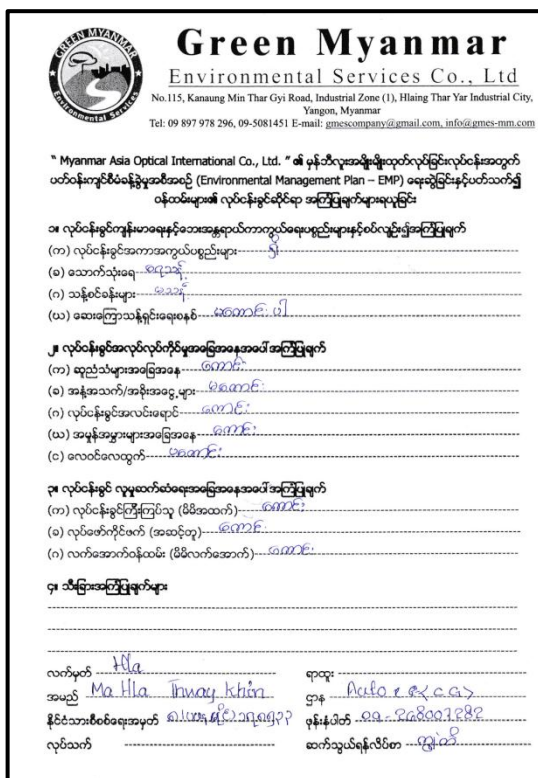 GREEN MYANMAR
Environmental Services
Green Myanmar
Environmental Services Co., Ltd
No.115, Kanaung Min Thar Gyi Road, Industrial Zone (1), Hlaing Thar Yar Industrial City,
Yangon, Myanmar
Tel: 09 897 978 296, 09-5081451 E-mail: gmescompany@gmail.com, info@gmes-mm.com
" Myanmar Asia Optical International Co., Ltd. " ၏ မှန်ဘီလူးအမျိုးမျိုးထုတ်လုပ်ခြင်းလုပ်ငန်းအတွက်
ပတ်ဝန်းကျင်စီမံခန့်ခွဲမှုအစီအစဉ် (Environmental Management Plan – EMP) ရေးဆွဲခြင်းနှင့်ပတ်သက်၍
ဝန်ထမ်းများ၏ လုပ်ငန်းခွင်ဆိုင်ရာ အကြံပြုချက်များရယူခြင်း
၁။ လုပ်ငန်းခွင်ကျန်းမာရေးနှင့်ဘေးအန္တရာယ်ကာကွယ်ရေးပစ္စည်းများနှင့်စပ်လျဉ်း၍အကြံပြုချက်
(က) လုပ်ငန်းခွင်အကာအကွယ်ပစ္စည်းများ ရှိ
(ခ) သောက်သုံးရေ
(ဂ) သန့်စင်ခန်းများ မသန့်
(ဃ) ဆေးကြောသန့်ရှင်းရေးစနစ် မကောင်းပါ
၂။ လုပ်ငန်းခွင်အလုပ်လုပ်ကိုင်မှုအခြေအနေအပေါ် အကြံပြုချက်
(က) ဆူညံသံများအခြေအနေ ကောင်း
(ခ) အနံ့အသက်/အခိုးအငွေ့များ မကောင်း
(ဂ) လုပ်ငန်းခွင်အလင်းရောင် ကောင်း
(ဃ) အမှုန်အမွှားများအခြေအနေ ကောင်း
(င) လေဝင်လေထွက် မကောင်း
၃။ လုပ်ငန်းခွင် လူမှုဆက်ဆံရေးအခြေအနေအပေါ် အကြံပြုချက်
(က) လုပ်ငန်းခွင်ကြီးကြပ်သူ (မိမိအထက်) ကောင်း
(ခ) လုပ်ဖော်ကိုင်ဖက် (အဆင့်တူ) ကောင်း
(ဂ) လက်အောက်ဝန်ထမ်း (မိမိလက်အောက်) ကောင်း
၄။ သီးခြားအကြံပြုချက်များ
လက်မှတ် Hla ရာထူး
အမည် Ma Hla Thway Khin ဌာန
နိုင်ငံသားစိစစ်ရေးအမှတ် ဖုန်းနံပါတ် 09-268007282
လုပ်သက် ဆက်သွယ်ရန်လိပ်စာ